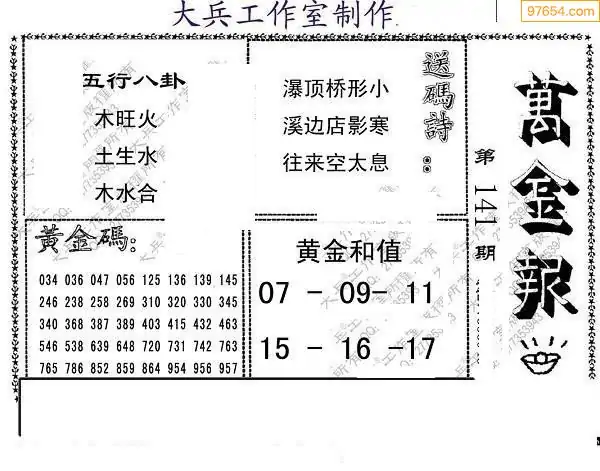 大兵工作室制作
97654.com
五行八卦
木旺火
土生水
木水合
送碼詩：
瀑顶桥形小
溪边店影寒
往来空太息
萬金報
第141期
黃金碼:
034 036 047 056 125 136 139 145
246 238 258 269 310 320 330 345
340 368 387 389 403 415 432 463
546 538 639 648 720 731 742 763
765 786 852 859 864 954 956 957
黄金和值
07 - 09- 11
15 - 16 -17